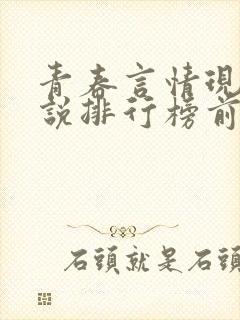 青春言情現
說排行榜前
石頭就是石頭